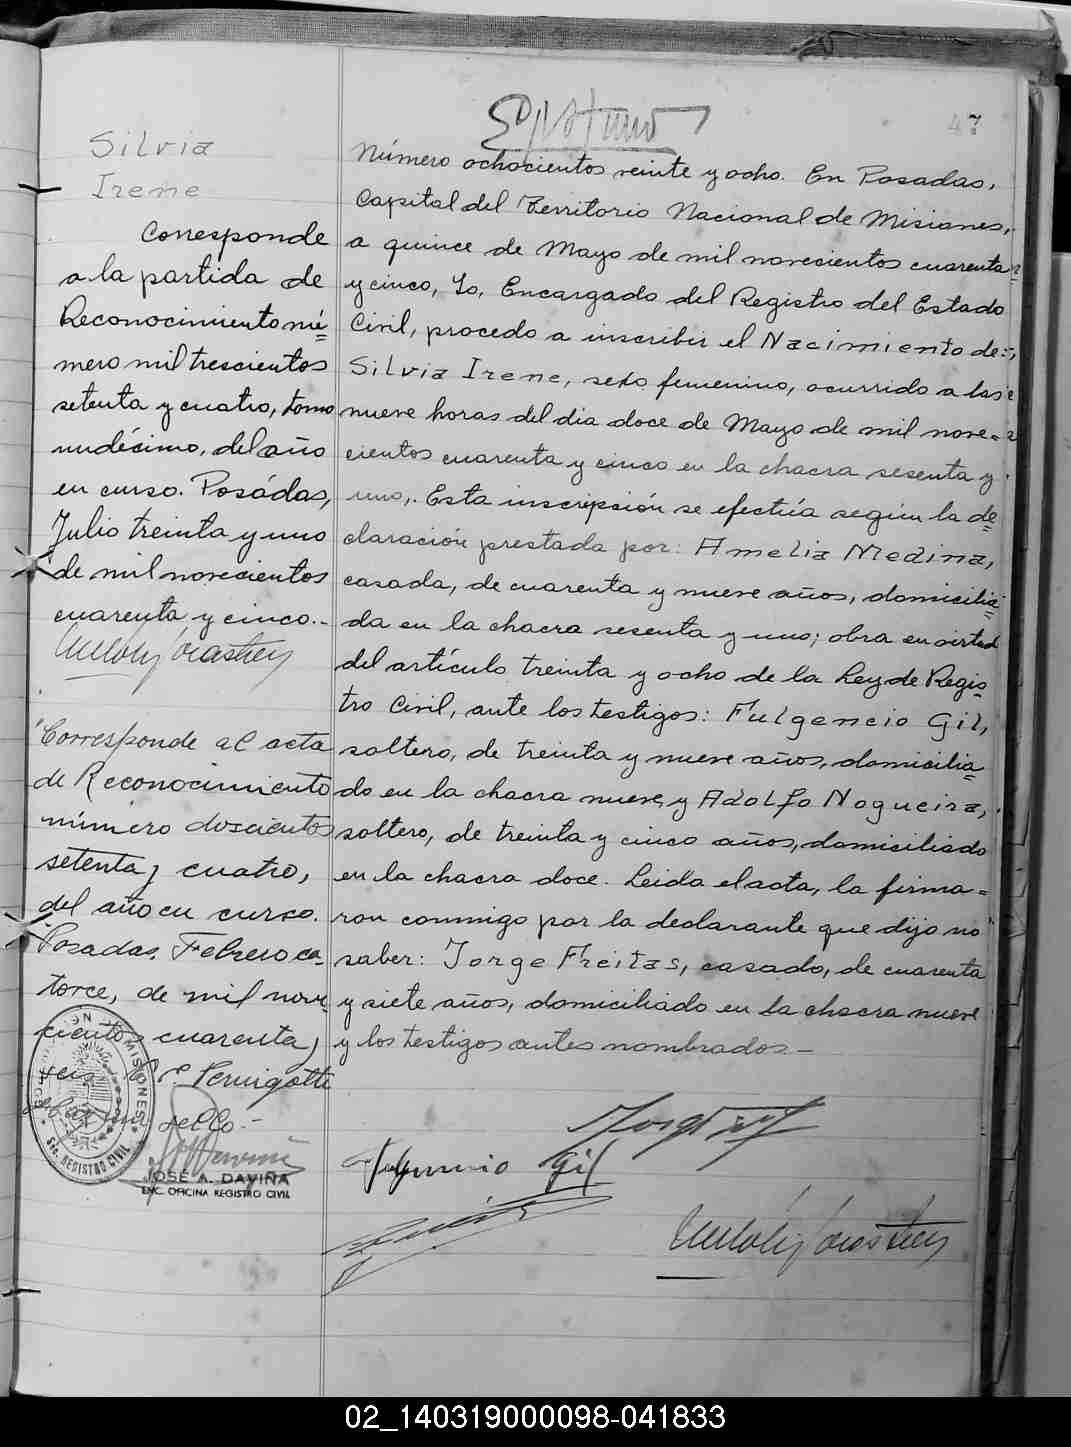 47
Silvia
Irene
Corresponde
a la partida de
Reconocimiento nú=
mero mil trescientos
setenta y cuatro, tomo
undécimo, del año
en curso. Posadas,
Julio treinta y uno
de mil novecientos
cuarenta y cinco.-
Corresponde al acta
de Reconocimiento
número doscientos
setenta y cuatro,
del año en curso.
Posadas, Febrero ca-
torce, de mil nove
cientos cuarenta y
seis
sello.-
MISIONES
SEC. REGISTRO CIVIL
JOSÉ A. DAVIÑA
ENC. OFICINA REGISTRO CIVIL
Número ochocientos veinte y ocho. En Posadas,
Capital del Territorio Nacional de Misiones,
a quince de Mayo de mil novecientos cuarenta
y cinco, Yo, Encargado del Registro del Estado
Civil, procedo a inscribir el Nacimiento de:-
Silvia Irene, sexo femenino, ocurrido a las
nueve horas del dia doce de Mayo de mil nove=
cientos cuarenta y cinco en la chacra sesenta y
uno,. Esta inscripción se efectúa según la de=
claración prestada por: Amelia Medina,
casada, de cuarenta y nueve años, domicilia=
da en la chacra sesenta y uno; obra en virtud
del artículo treinta y ocho de la Ley de Regis-
tro Civil, ante los testigos: Fulgencio Gil,
soltero, de treinta y nueve años, domicilia=
do en la chacra nueve, y Adolfo Nogueira,
soltero, de treinta y cinco años, domiciliado
en la chacra doce. Leida el acta, la firma=
ron conmigo por la declarante que dijo no
saber: Jorge Freitas, casado, de cuarenta
y siete años, domiciliado en la chacra nueve
y los testigos antes nombrados.-
Gil
02_140319000098-041833